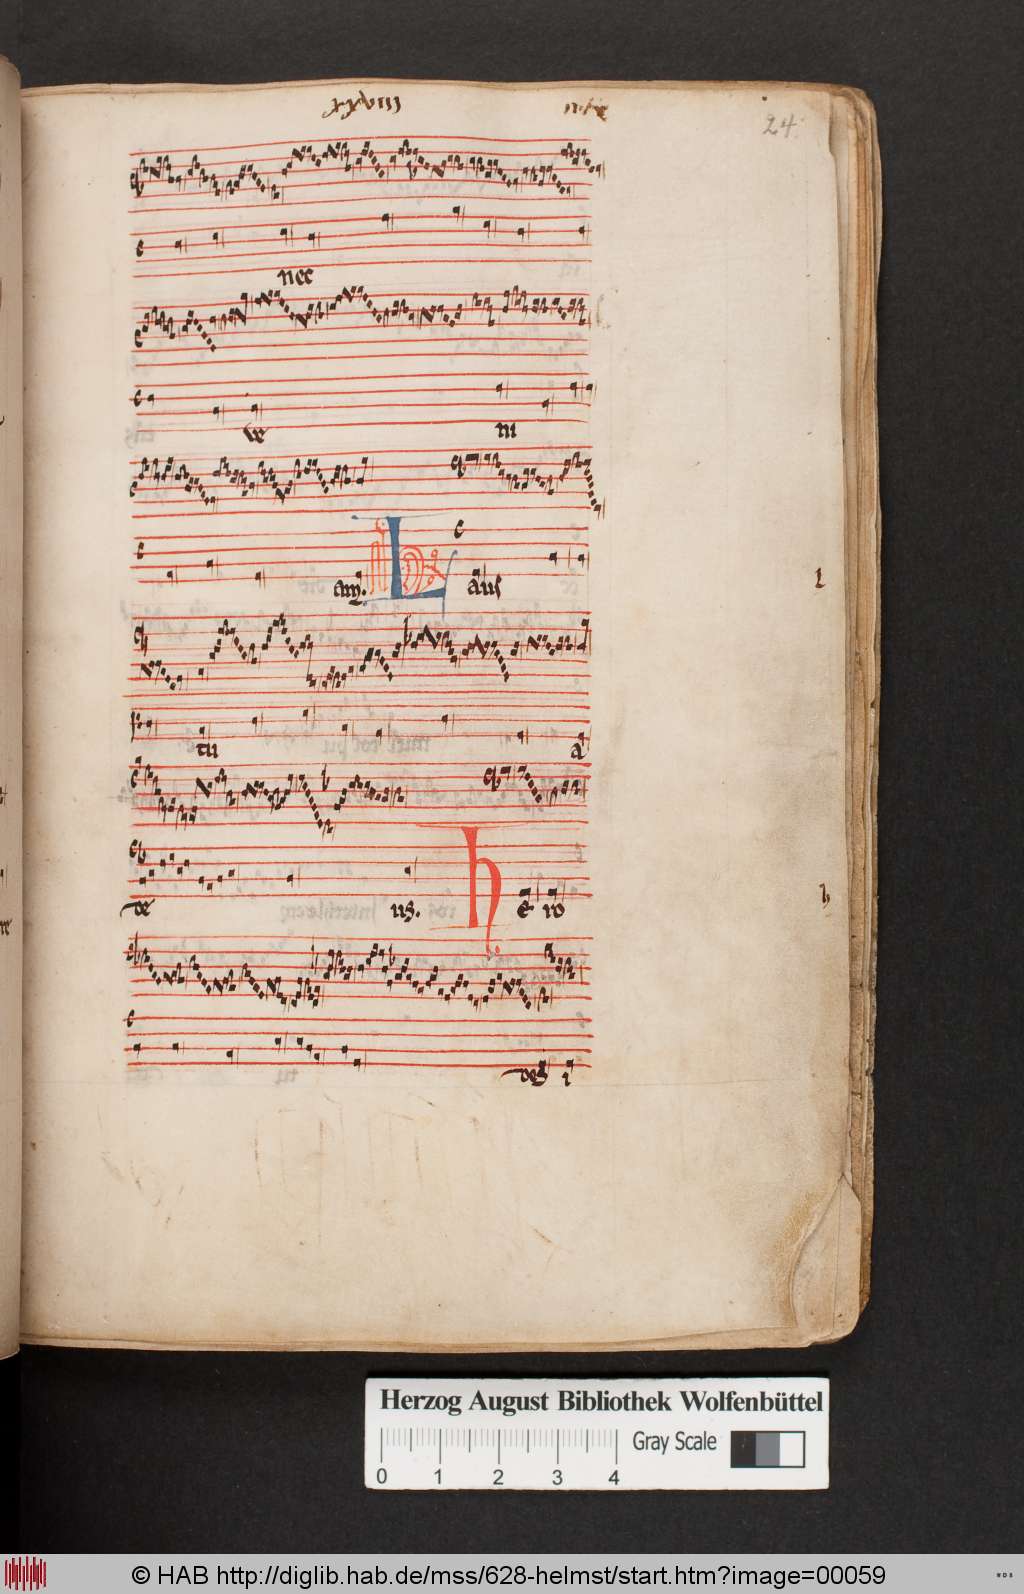 xxviii
24.
nec
ve ni
am. Laus
L
tu a
de us. Hero
h
des i
Herzog August Bibliothek Wolfenbüttel
Gray Scale
0 1 2 3 4
© HAB http://diglib.hab.de/mss/628-helmst/start.htm?image=00059